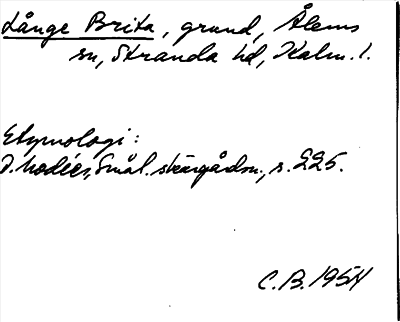 Långe Brita, grund, Ålems
sn, Stranda hd, Kalm. l.
Etymologi:
J. Modéer, Smål. skärgårdsn., s. 225.
C.B. 1954